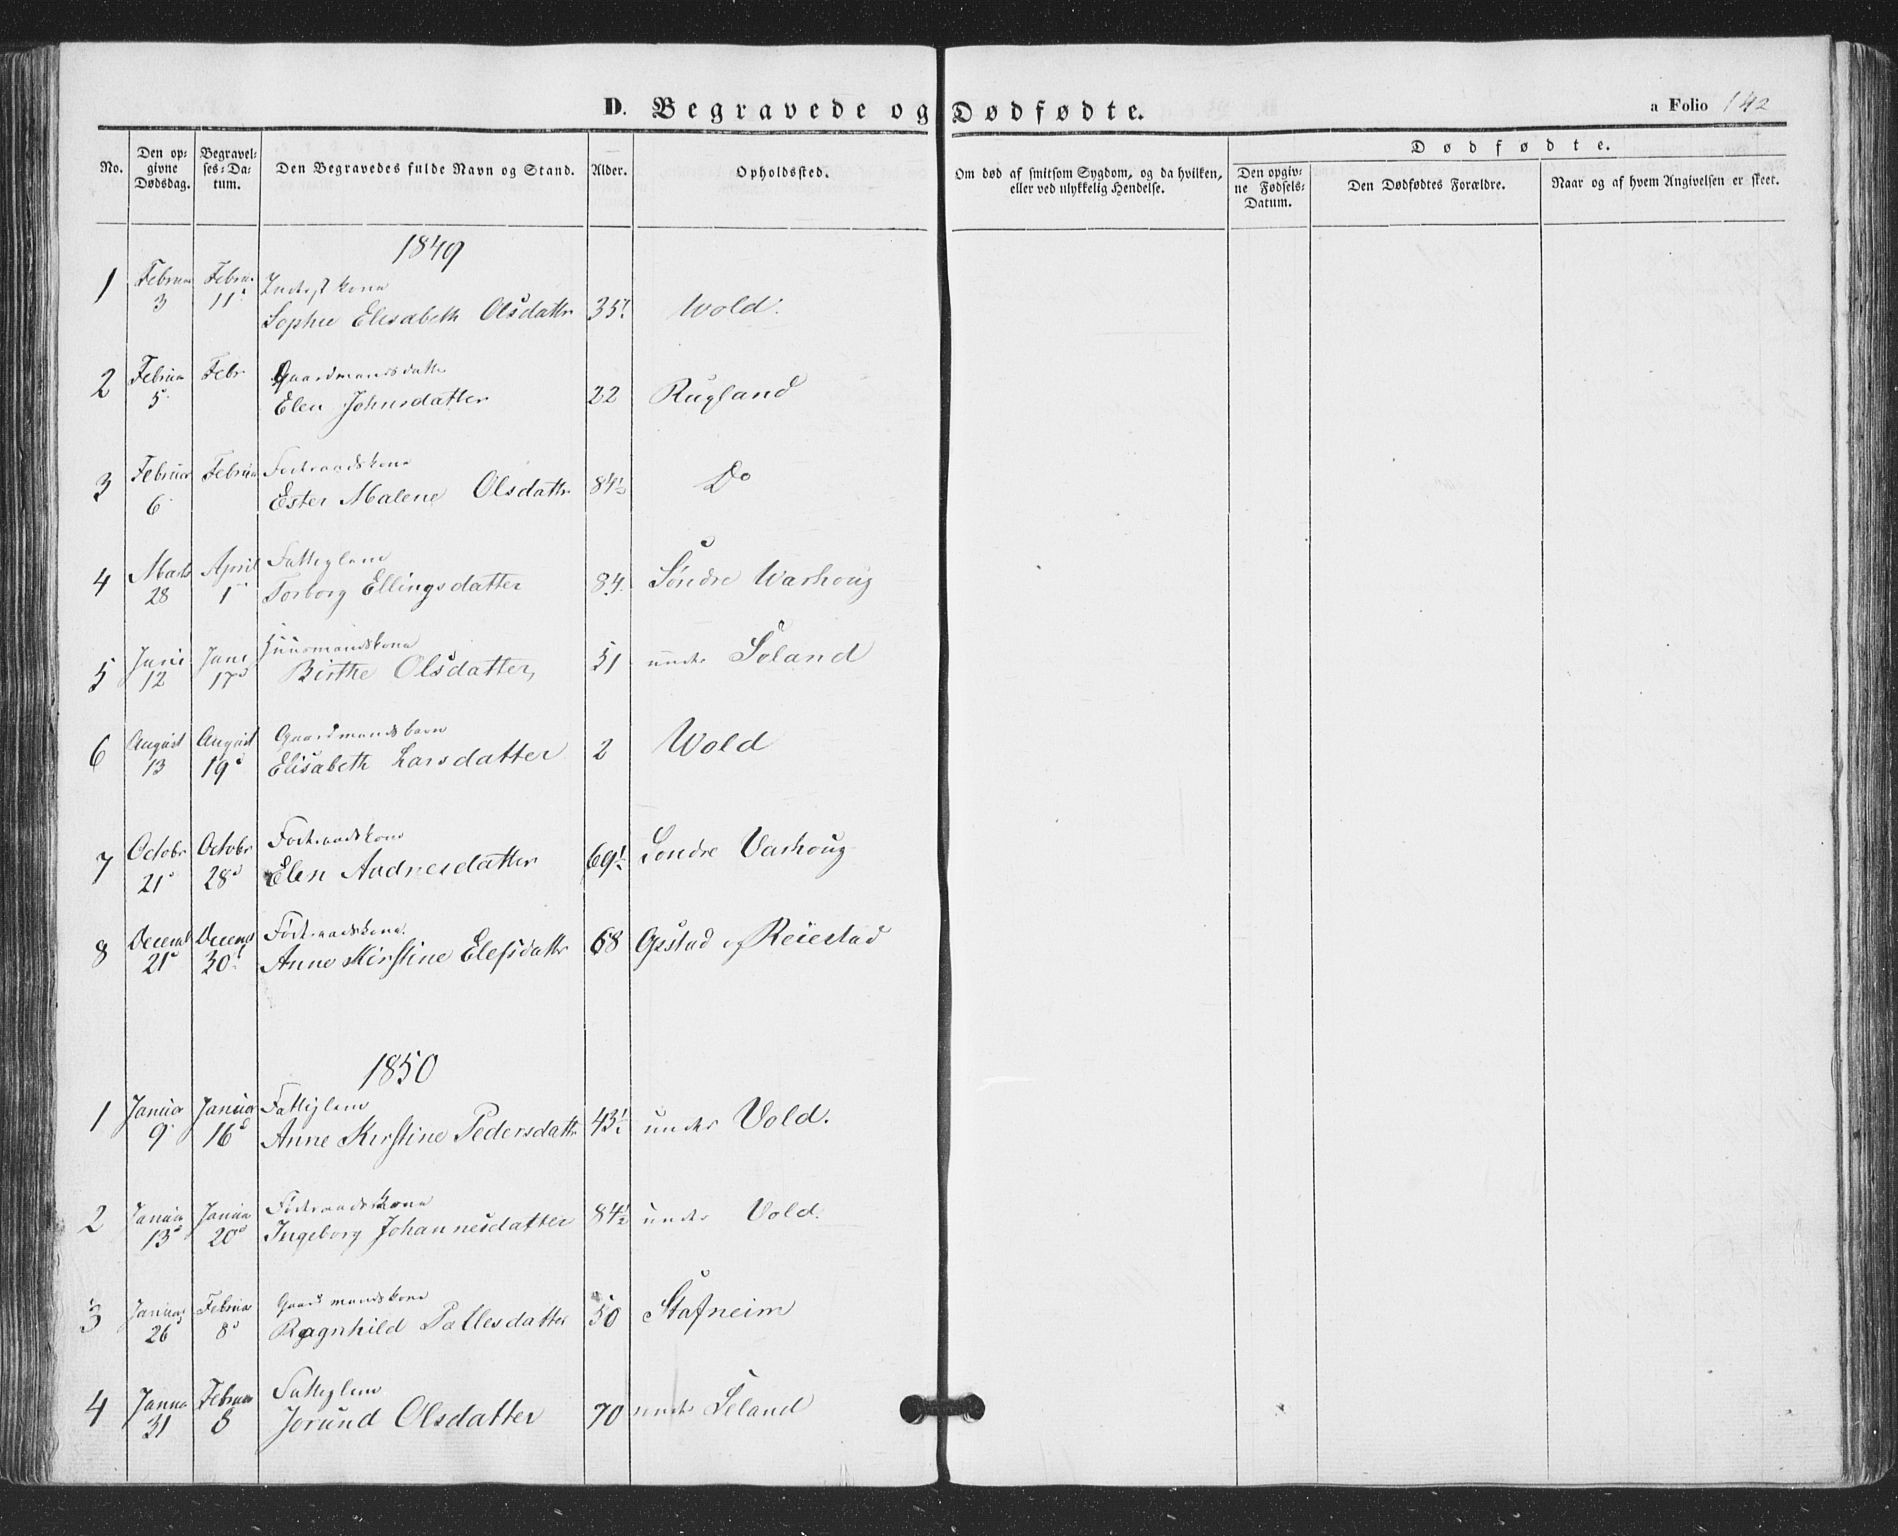 D. Begravede og Dødfødte.
a Folio 142
No.
Den opgivne Dødsdag.
Begravelses-Datum.
Den Begravedes fulde Navn og Stand.
Alder.
Opholdssted.
Om død af smitsom Sygdom, og da hvilken, eller ved ulykkelig Hendelse.
Dødfødte.
Den opgivne Fødsels-Datum.
Den Dødfødtes Forældre.
Naar og af hvem Angivelsen er skeet.
1849
1 Februar 3 Febru 11 Inderst kone
Sophie Elisabeth Olsdattr 35 Wold.
2 Februar 5 Febr Gaardmandsdatter
Elen Johnsdatter 22 Rugland
3 Februar 6 Februar Foderaadskone
Ester Malene Olsdattr 84½ Do
4 Marts 28 April 1 Fattiglem
Torborg Ellingsdatter 84. Söndre Warhoug
5 Juni 12 Juni 17 Huusmandskone
Birthe Olsdatter, 51 under Söland
6 August 13 August 19 Gaardmandsbarn
Elisabeth Larsdatter 2 Wold
7 Octobr 21 Octobr 28 Foderaadskone
Elen Andresdatter 69½ Söndre Varhoug
8 Decemb 21 Decemb 30 Föderaadskone
Anne Kirstine Elefsdattr 68 Opstad og Reiestad
1850
1 Januar 9 Januar 16 Fattiglem
Anne Kirstine Pedersdattr 43½ under Vold.
2 Januar 13 Januar 20 Föderaadskone
Ingeborg Johannesdatter 84½ under Vold.
3 Januar 26 Februar 8 Gaardmandskone
Ragnhild Pallesdatter 50 Stafneim
4 Janua 31 Februar 8 Fattiglem
Jorund Olsdatter 70 under Söland